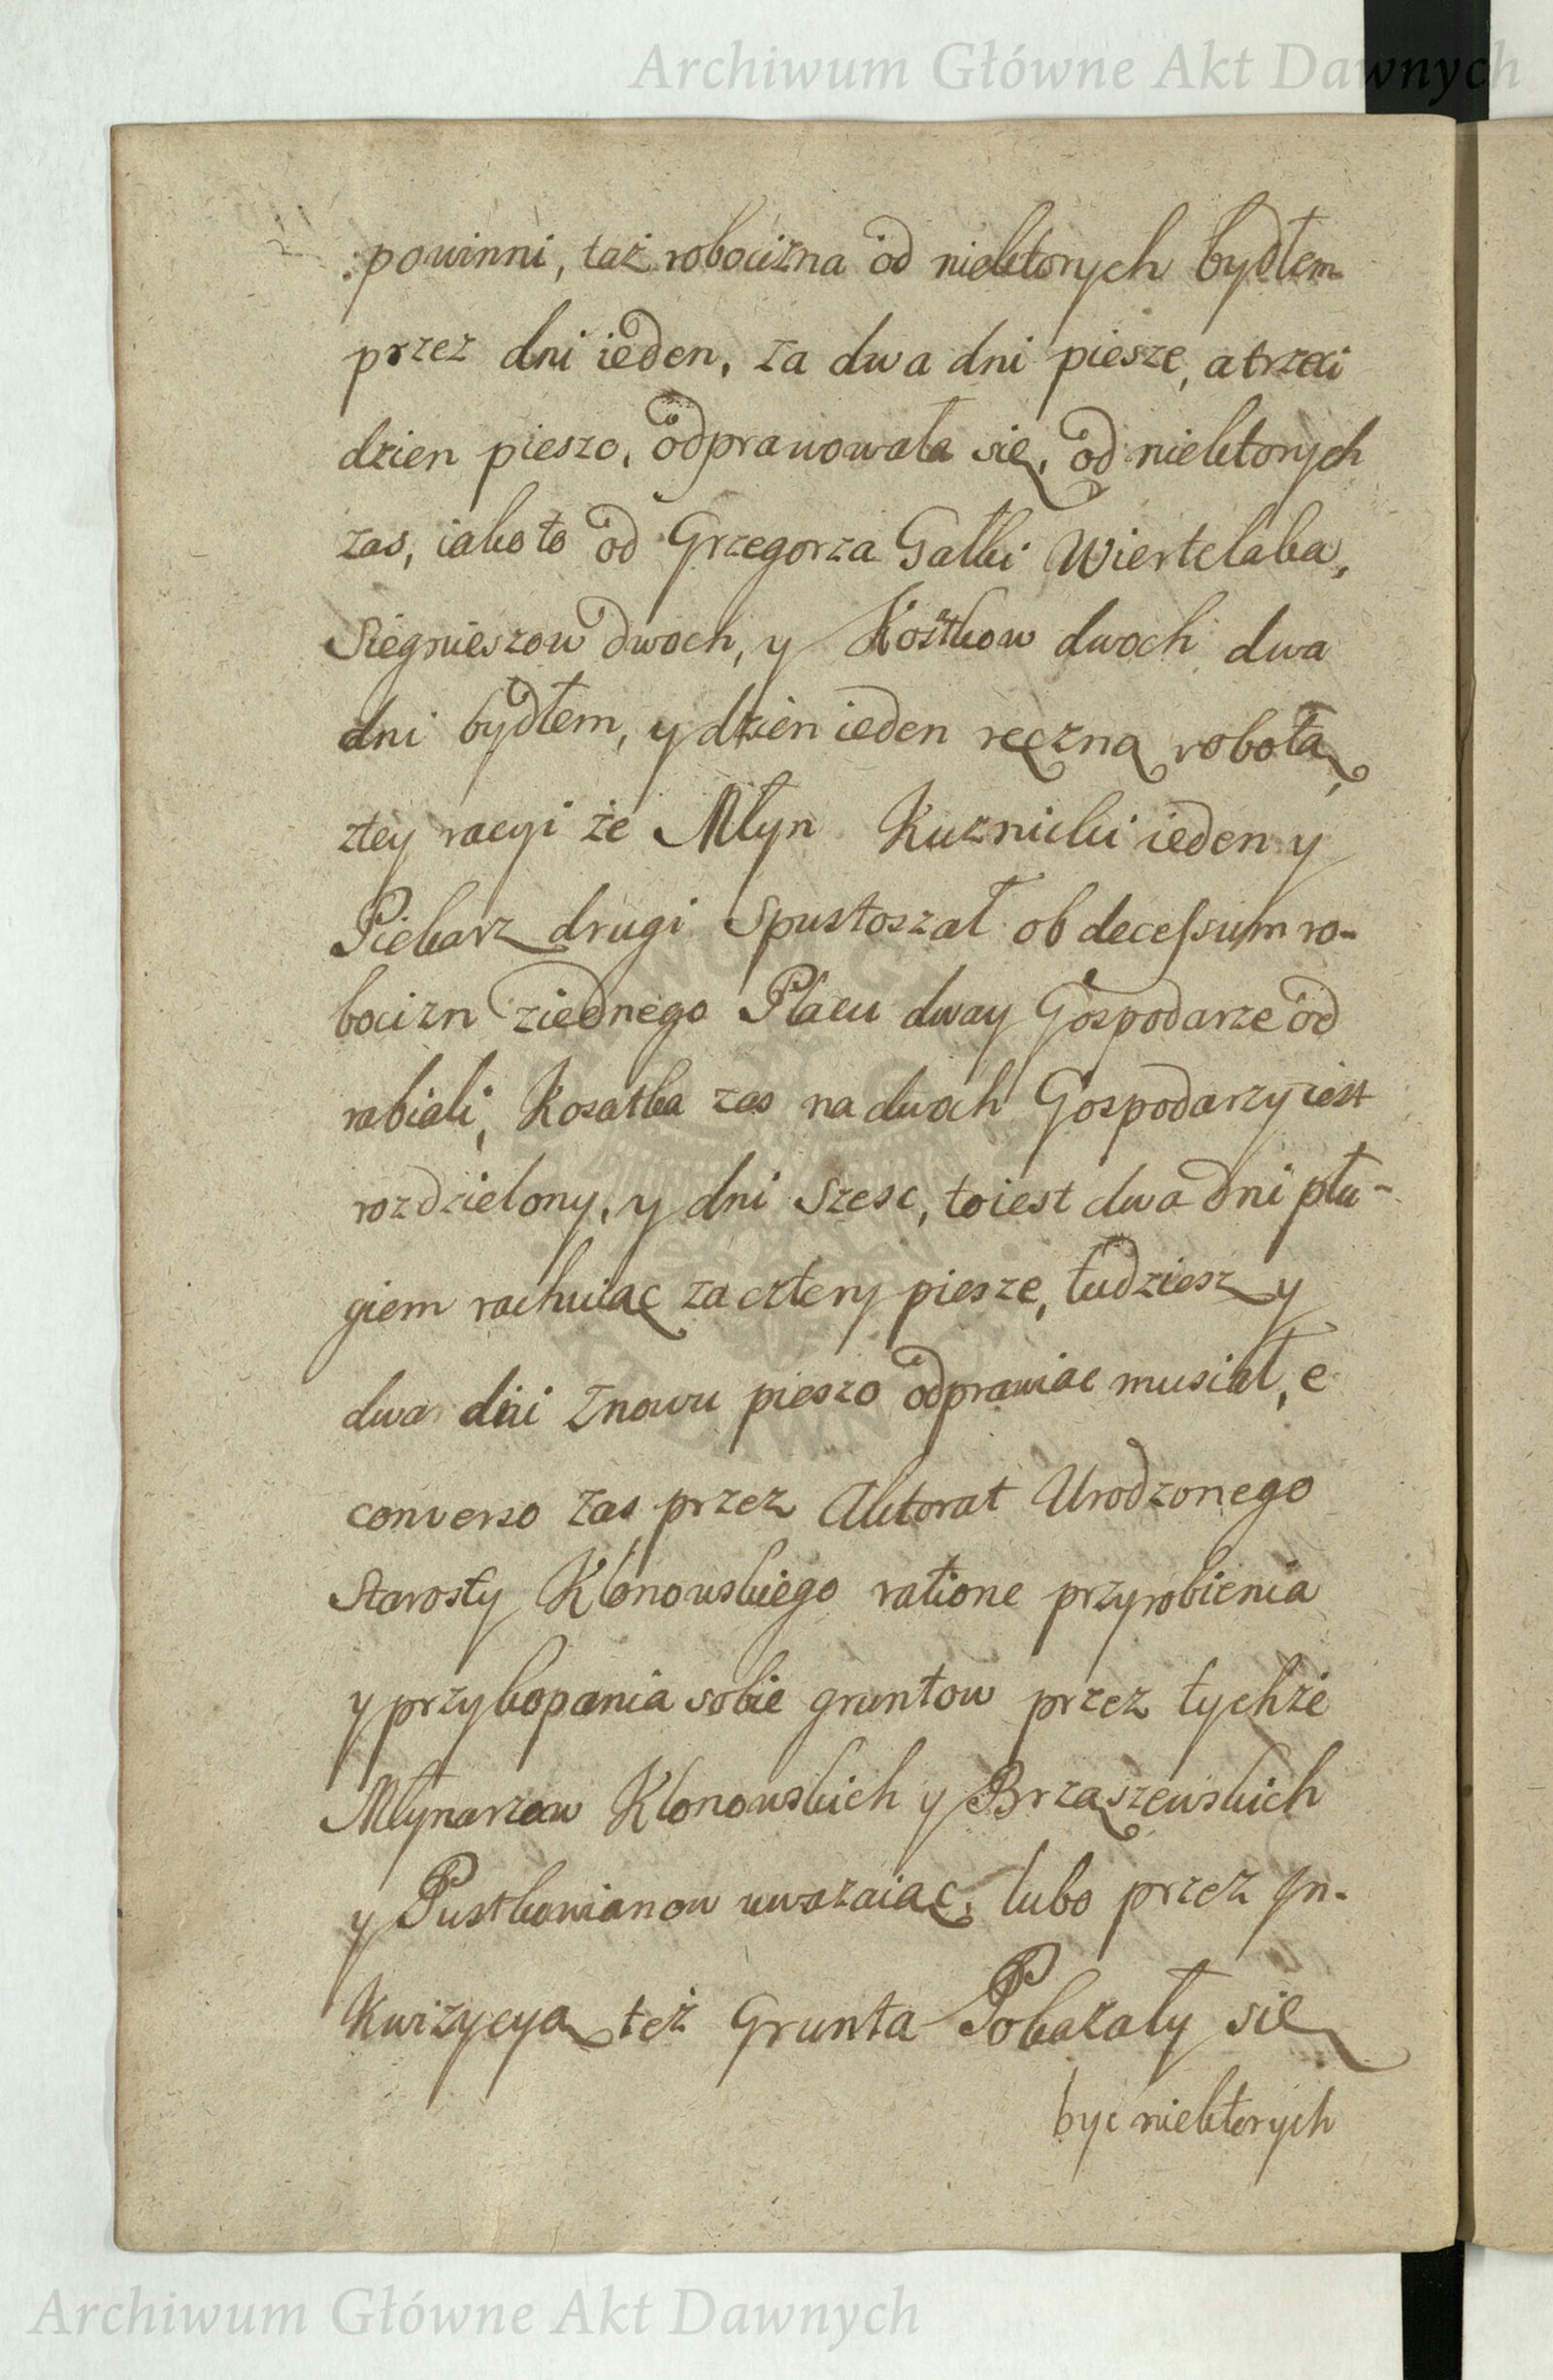 Archiwum Główne Akt Dawnych
powinni, taż robocizna od niektorych bydłem
przez dni ieden, za dwa dni piesze, a trzeci
dzien pieszo, odprawowała się, od niektorych
zas, iako to od Grzegorza Gałki Wiertelaka,
Siegnieszow dwoch, y Kostkow dwoch dwa
dni bydłem, y dzien ieden ręczną robotą,
ztey racyi że Młyn Kuznicki ieden y
Piekarz drugi spustoszał ob decessum ro-
bocizn ziednego Placu dway Gospodarze od
rabiali, Kosatka zas na dwoch Gospodarzy iest
rozdzielony, y dni szesc, toiest dwa dni płu-
giem rachuiąc za cztery piesze, tudziesz y
dwa dni znowu pieszo odprawiac musiał, e
converso zas przez Aktorat Urodzonego
Starosty Klonowskiego ratione przyrobienia
y przykopania sobie gruntow przez tychże
Młynarzow Klonowskich y Brzaszewskich
y Pustkowianow uwazaiąc, lubo przez In-
kwizycyą też Grunta Pokazały się
byc niektorych
Archiwum Główne Akt Dawnych